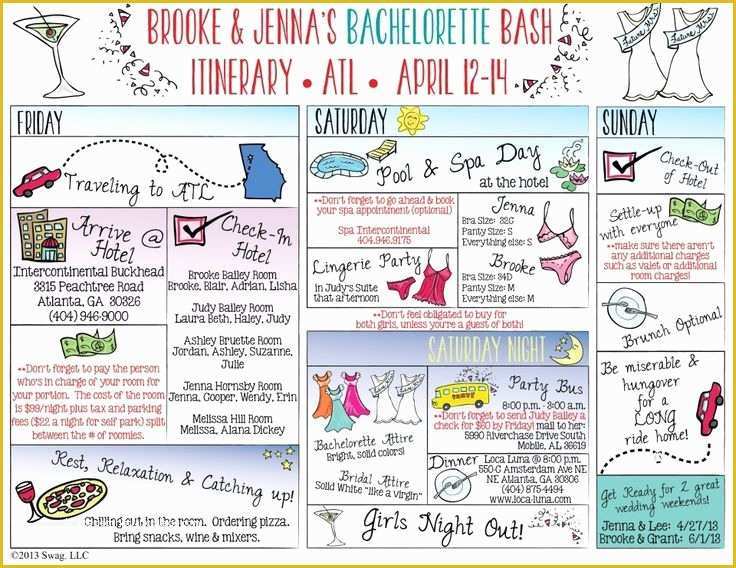 BROOKE & JENNA'S BACHELORETTE BASH
ITINERARY • ATL • APRIL 12-14
Future Mrs.
Future Mrs.
FRIDAY
Traveling to ATL
Arrive @
Hotel
Intercontinental Buckhead
3315 Peachtree Road
Atlanta, GA 30326
(404) 946-9000
**Don't forget to pay the person
who's in charge of your room for
your portion. The cost of the room
is $99/night plus tax and parking
fees ($22 a night for self park) split
between the # of roomies.
Check-In
Hotel
Brooke Bailey Room
Brooke, Blair, Adrian, Lisha
Judy Bailey Room
Laura Beth, Haley, Judy
Ashley Bruette Room
Jordan, Ashley, Suzanne,
Julie
Jenna Hornsby Room
Jenna, Cooper, Wendy, Erin
Melissa Hill Room
Melissa, Alana Dickey
Rest, Relaxation & Catching up!
Chilling out in the room. Ordering pizza.
Bring snacks, wine & mixers.
SATURDAY
Pool & Spa Day
at the hotel
**Don't forget to go ahead & book
your spa appointment (optional)
Spa Intercontinental
404.946.9175
Jenna
Bra Size: 32C
Panty Size: S
Everything else: S
Lingerie Party
in Judy's Suite
that afternoon
Brooke
Bra Size: 34D
Panty Size: M
Everything else: M
**Don't feel obligated to buy for
both girls, unless you're a guest of both!
SATURDAY NIGHT
Bachelorette Attire
Bright, solid colors!
Bridal Attire
Solid White "like a virgin"
PARTY
Party Bus
8:00 p.m. - 3:00 a.m.
**Don't forget to send Judy Bailey a
check for $60 by Friday! mail to her:
5990 Riverchase Drive South
Mobile, AL 36619
Dinner
Loca Luna @ 8:00 p.m.
550-C Amsterdam Ave NE
NE Atlanta, GA 30306
(404) 875-4494
www.loca-luna.com
Girls Night Out!
SUNDAY
Check-Out
of Hotel
Settle-up
with everyone
**make sure there aren't
any additional charges
such as valet or additional
room charges!
Brunch Optional
Be miserable &
hungover
for a
LONG
ride home!
Get Ready for 2 great
wedding weekends!
Jenna & Lee: 4/27/13
Brooke & Grant: 6/1/13
©2013 Swag, LLC